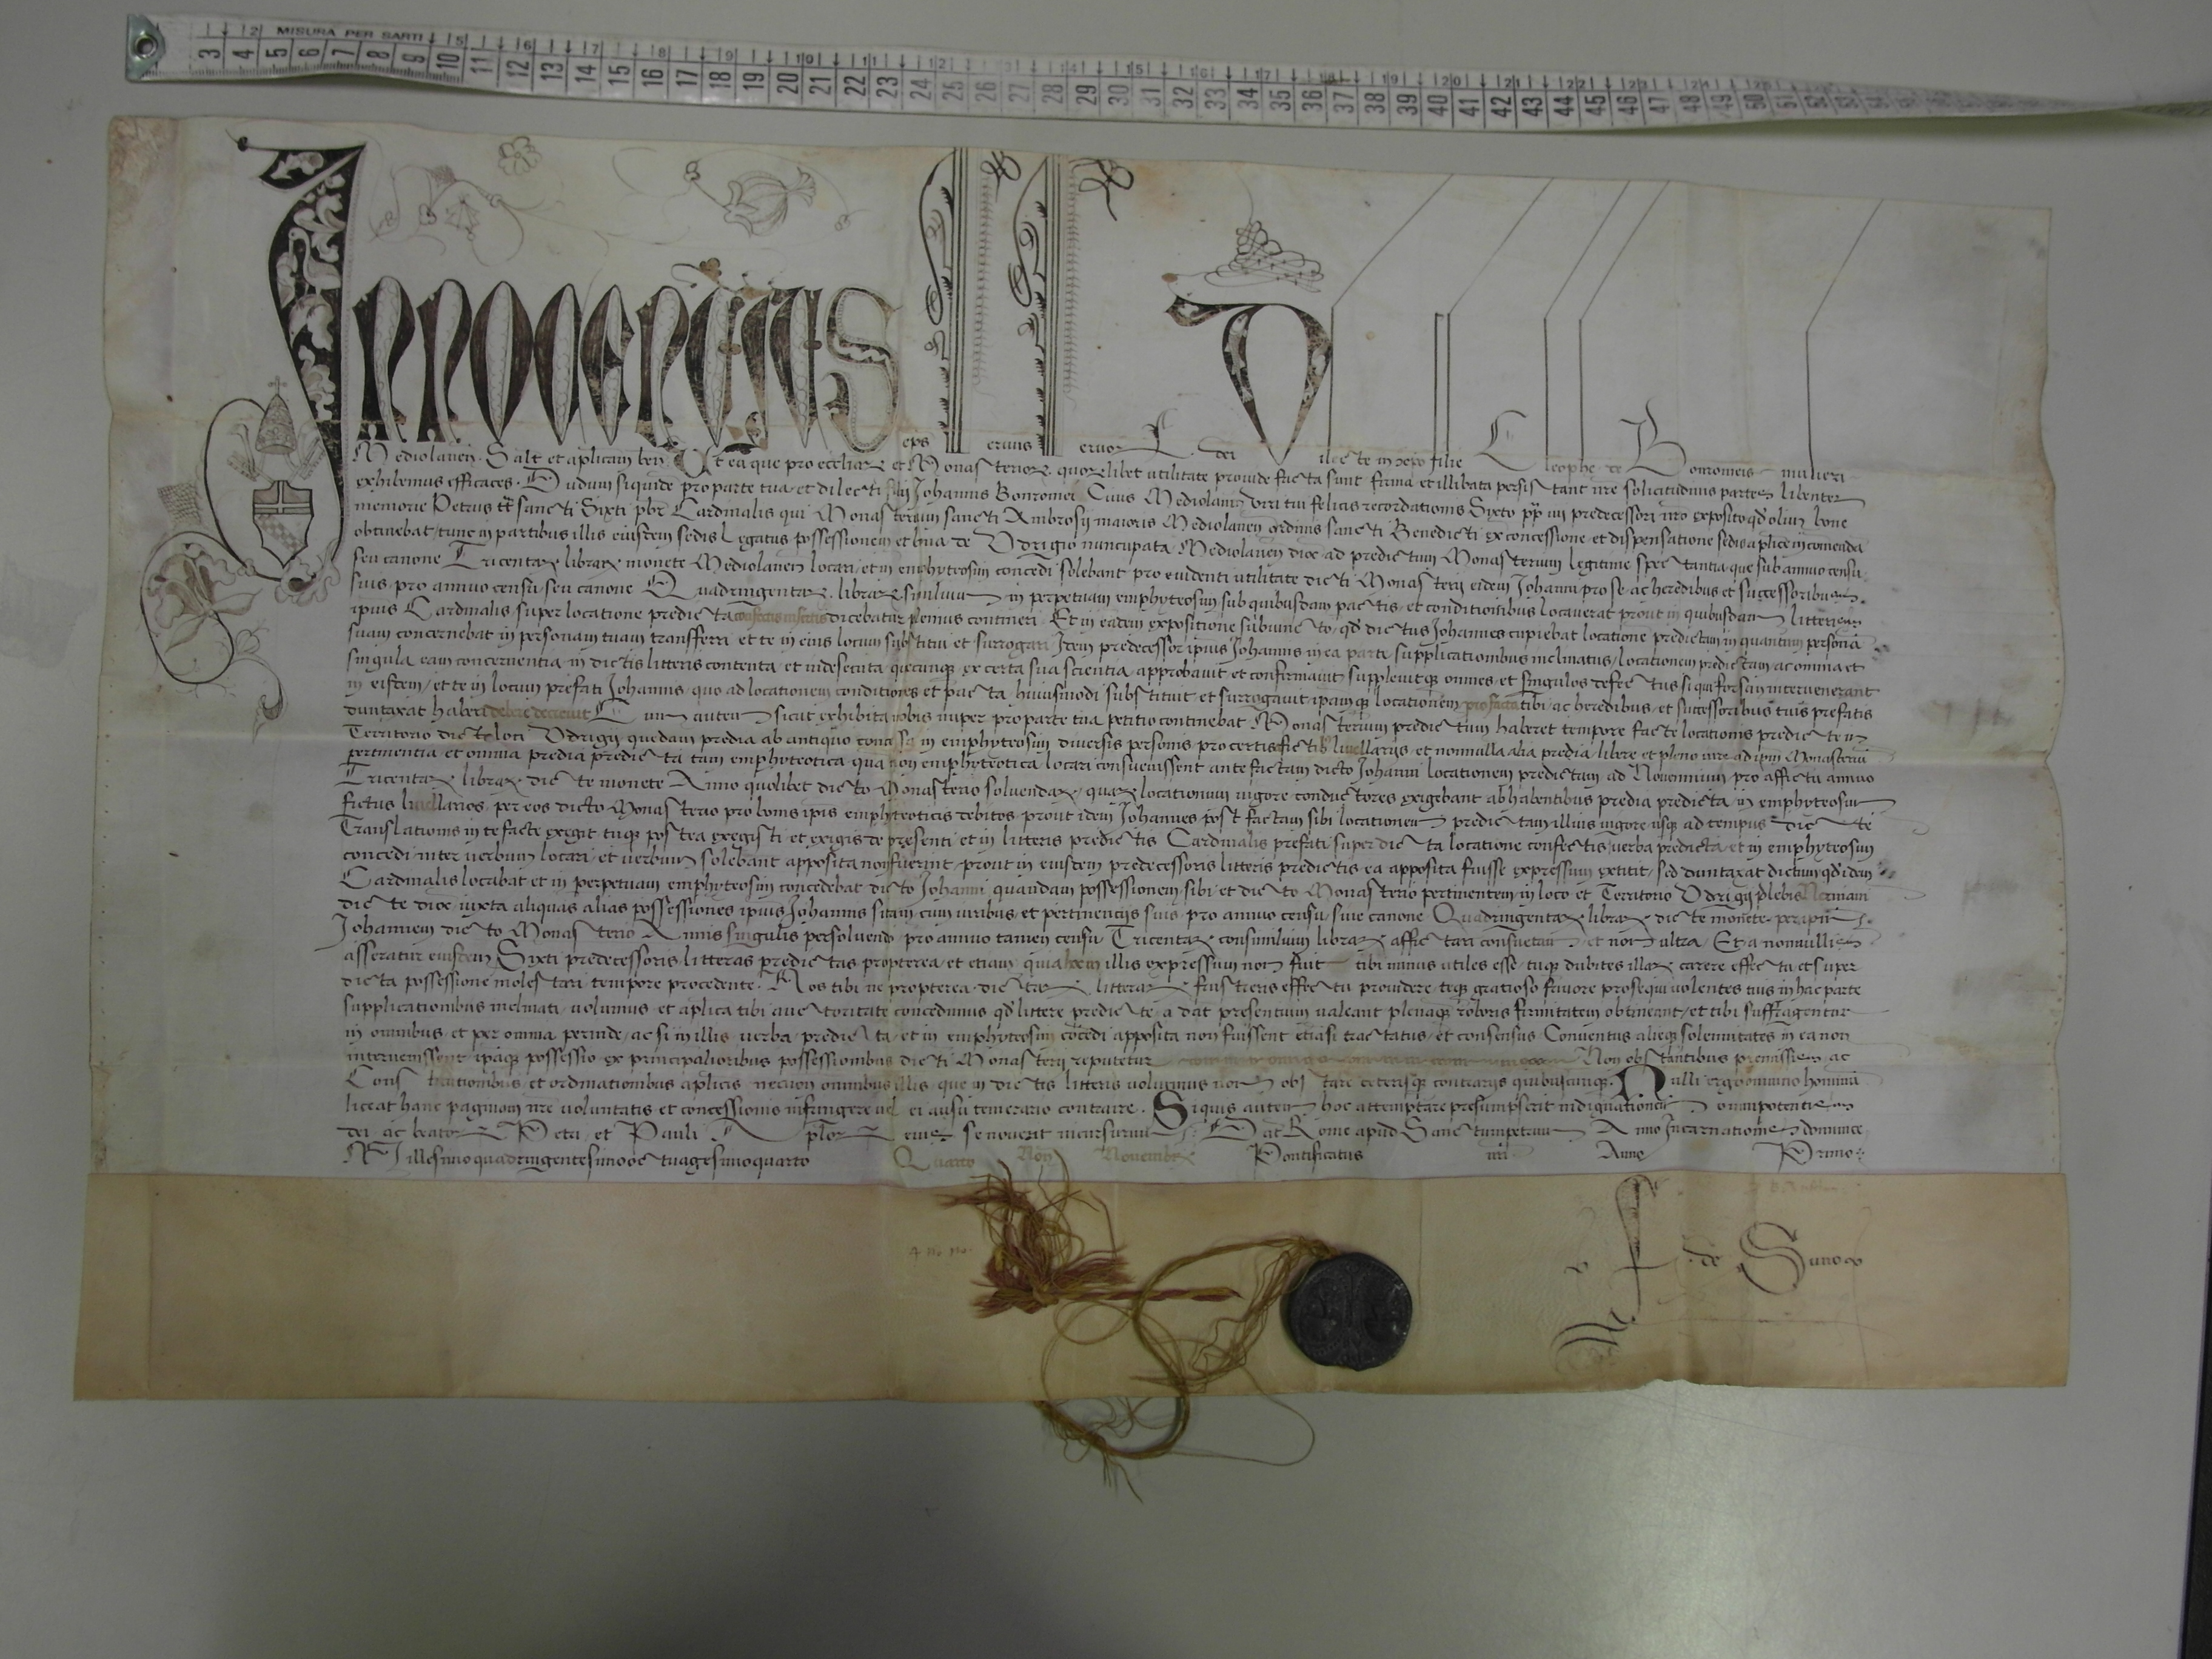 MISURA PER SARTI
3 4 5 6 7 8 9 10 11 12 13 14 15 16 17 18 19 20 21 22 23 24 25 26 27 28 29 30 31 32 33 34 35 36 37 38 39 40 41 42 43 44 45 46 47 48 49 50 51 52 53
Innocentius eps servus servor dei Dilecte in xpo filie Cleophe de Bonromeis mulieri
Mediolanen. Salt et aplicam ben. Ut ea que pro eccliar et Monasterior quorlibet utilitate provide facta sunt firma et illibata persistant nre solicitudinis partes libenter
exhibemus efficaces. Dudum siquidem pro parte tua et dilecti filii Johannis Bonromei Civis Mediolanen viri tui felicis recordationis Sixto pp iiii predecessori nro exposito qd olim bone
memorie Petrus tt sancti Sixti pbr Cardinalis qui Monasterium sancti Ambrosii maioris Mediolanen ordinis sancti Benedicti ex concessione et dispensatione sedis aplice in comendam
obtinebat tunc in partibus illis eiusdem sedis Legatus possessionem et bona de Vdrigio nuncupata Mediolanen dioc ad predictum Monasterium legitime spectantia que sub annuo censu
seu canone Tricentar librar monete Mediolanen locari et in emphyteosim concedi solebant pro evidenti utilitate dicti Monasterii eidem Johanni pro se ac heredibus et successoribus
suis pro annuo censu seu canone Quadringentar librar similium in perpetuam emphyteosim sub quibusdam pactis et conditionibus locaverat prout in quibusdam litteris
ipius Cardinalis super locatione predicta confectis dicebatur plenius contineri Et in eadem expositione subiuncto qd dictus Johannes cupiebat locationem predictam in quantum personam
suam concernebat in personam tuam transferri et te in eius locum substitui et surrogari Idem predecessor ipius Johannis in ea parte supplicationibus inclinatus locationem predictam ac omnia et
singula eam concernentia in dictis litteris contenta et inde secuta quecunq ex certa sua scientia approbavit et confirmavit supplevitq omnes et singulos defectus siqui forsan intervenerant
in eisdem et te in locum prefati Johannis quo ad locationem conditiones et pacta huiusmodi substituit et surrogavit ipamq locationem pro facta tibi ac heredibus et successoribus tuis prefatis
duntaxat haberi debere decrevit Cum autem sicut exhibita nobis nuper pro parte tua petitio continebat Monasterium predictum haberet tempore facte locationis predicte in
Territorio dicti loci Vdrigii quedam predia ab antiquo concessa in emphyteosim diversis personis pro certis fictis livellariis et nonnulla alia predia libere et pleno iure ad ipm Monasterium
pertinentia et omnia predia predicta tam emphyteotica qua non emphyteotica locari consuevissent ante factam dicto Johanni locationem predictam ad Novennium pro affictu annuo
Tricentar librar dicte monete Anno quolibet dicto Monasterio solvendar quar locationum vigore conductores exigebant ab habentibus predia predicta in emphyteosim
fictus livellarios per eos dicto Monasterio pro bonis ipis emphyteoticis debitos prout idem Johannes post factam sibi locationem predictam illius vigore usq ad tempus dicte
Translationis in te facte exegit tuq postea exegisti et exigis de presenti et in litteris predictis Cardinalis prefati super dicta locatione confectis verba predicta et in emphyteosim
concedi inter verbum locari et verbum solebant apposita non fuerint prout in eiusdem predecessoris litteris predictis ea apposita fuisse expressum extitit sed duntaxat dictum qd idem
Cardinalis locabat et in perpetuam emphyteosim concedebat dicto Johanni quandam possessionem sibi et dicto Monasterio pertinentem in loco et Territorio Vdrigii plebis
dicte dioc iuxta aliquas alias possessiones ipius Johannis sitam cum iuribus et pertinenciis suis pro annuo censu sive canone Quadringentar librar dicte monete per ipm
Johannem dicto Monasterio Annis singulis persolvendo pro annuo tamen censu Tricentar consimilium librar affictari consuetam et non ultra Et a nonnullis
asseratur eiusdem Sixti predecessoris litteras predictas propterea et etiam quia in illis expressum non fuit tibi minus utiles esse tuq dubites illar carere effectu et super
dicta possessione molestari tempore procedente. Nos tibi ne propterea dictar litterar frustreris effectu providere teq gratioso favore prosequi volentes tuis in hac parte
supplicationibus inclinati volumus et aplica tibi auctoritate concedimus qd littere predicte a dat presentium valeant plenamq roboris firmitatem obtineant et tibi suffragentur
in omnibus et per omnia perinde ac si in illis verba predicta et in emphyteosim concedi apposita non fuissent etiasi tractatus et consensus Conventus alieq solennitates in ea non
intervenissent ipaq possessio ex principalioribus possessionibus dicti Monasterii reputetur Non obstantibus premissis ac
Constitutionibus et ordinationibus aplicis necnon omnibus illis que in dictis litteris volumus non obstare ceterisq contrariis quibuscunq. Nulli ergo omnino hominum
liceat hanc paginam nre voluntatis et concessionis infringere vel ei ausu temerario contraire. Siquis autem hoc attemptare presumpserit indignationem omnipotentis
dei ac beator Petri et Pauli Aplor eius se noverit incursurum. Dat Rome apud Sanctumpetrum Anno Incarnationis dominice
Millesimoquadringentesimooctuagesimoquarto Quarto Non Novembr Pontificatus nri Anno Primo
de Sinno